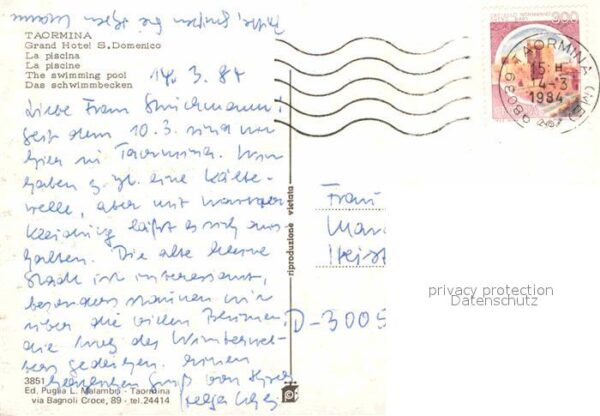 Bitte, grüßen Sie Ihren
TAORMINA
Grand Hotel S. Domenico
La piscina
La piscine
The swimming pool
Das schwimmbecken
14. 3. 84
Liebe Frau
seit dem 10. 3. sind wir
hier in Taormina. Wir
haben z. Zt. eine Kälte-
welle, aber mit warmer
Kleidung läßt es sich aus-
halten. Die alte kleine
Stadt ist interessant,
besonders staunen wir
über die vielen Blumen,
die trotz des Winterwet-
ters gedeihen. Einen
herzlichen Gruß von Ihrer
Helga
3851
Ed. Puglia L. Malambrì - Taormina
via Bagnoli Croce, 89 - tel. 24414
riproduzione vietata
300
98039 TAORMINA (ME)
15 H
14-3
1984
Frau
D-3005
privacy protection
Datenschutz